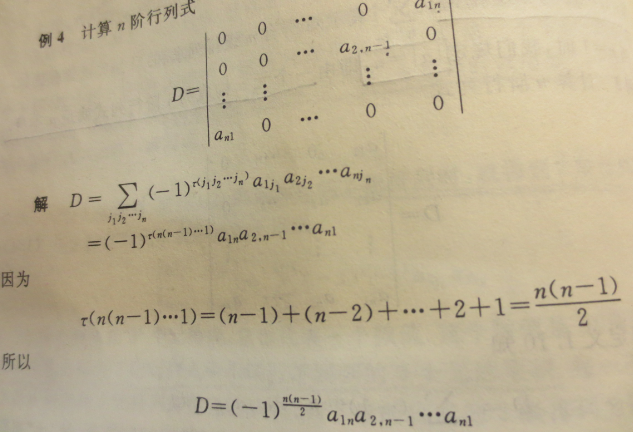 例 4 计算 n 阶行列式
D=
0 0 ⋯ 0 a₁ₙ
0 0 ⋯ a₂,ₙ₋₁ 0
⋮ ⋮ ⋮ ⋮
aₙ₁ 0 ⋯ 0 0
解 D = ∑_{j₁j₂⋯jₙ} (−1)^{τ(j₁j₂⋯jₙ)} a_{1j₁} a_{2j₂} ⋯ a_{njₙ}
=(−1)^{τ(n(n−1)⋯1)} a₁ₙa₂,ₙ₋₁⋯aₙ₁
因为
τ(n(n−1)⋯1)=(n−1)+(n−2)+⋯+2+1=\frac{n(n−1)}{2}
所以
D=(−1)^{\frac{n(n−1)}{2}} a₁ₙa₂,ₙ₋₁⋯aₙ₁